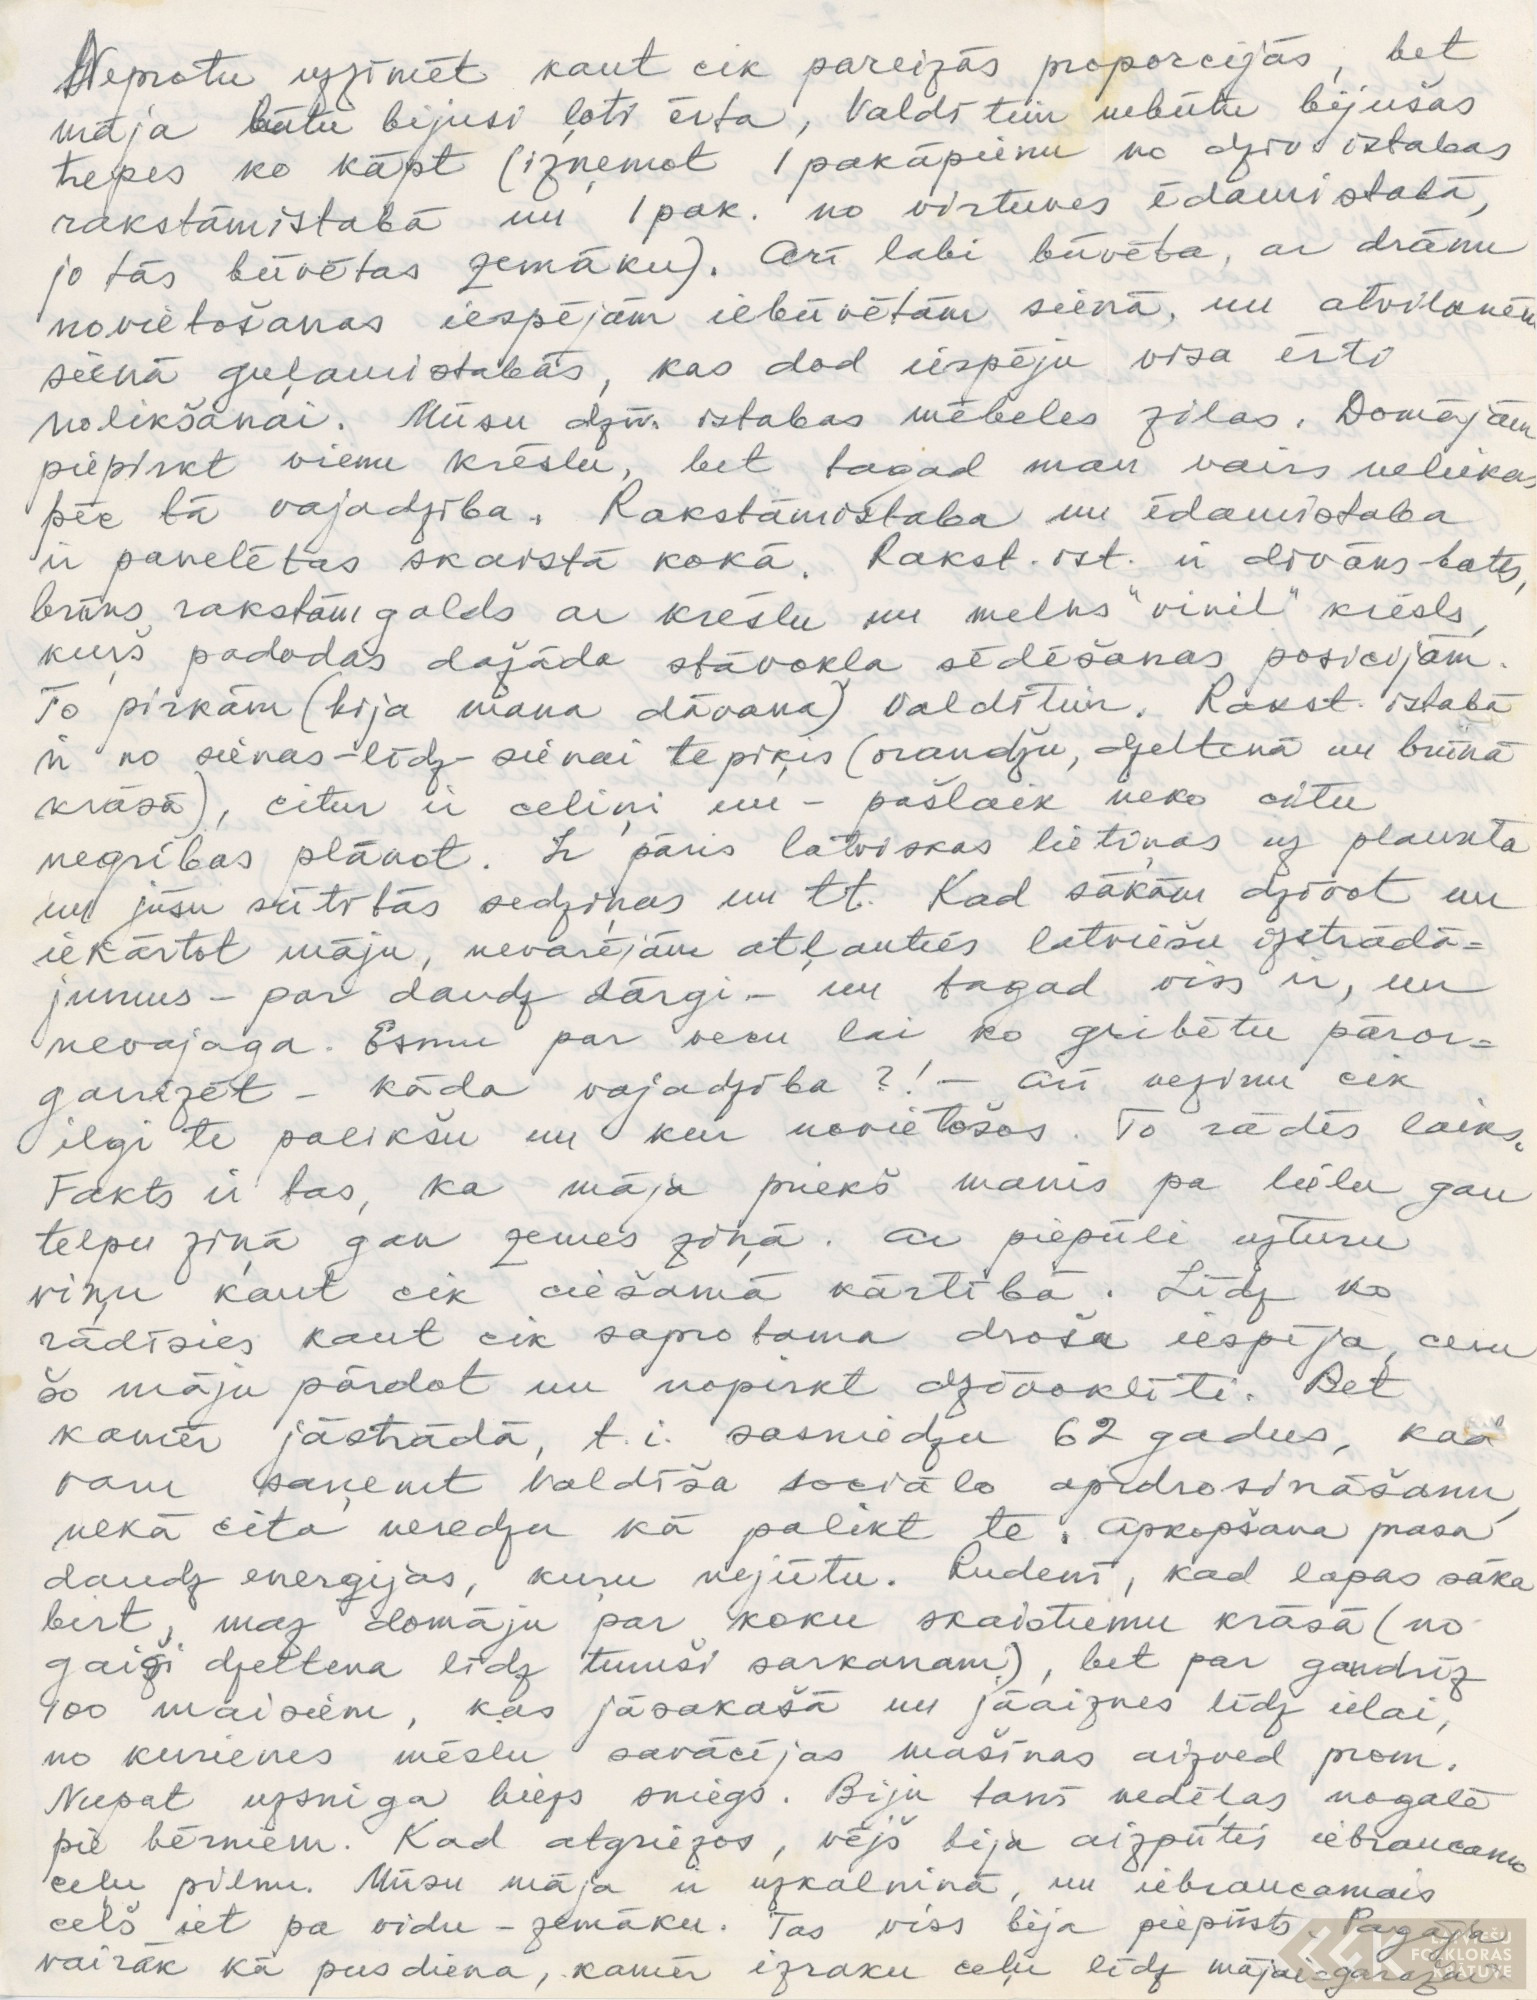 Neprotu uzzīmēt kaut cik pareizās proporcijās, bet
māja būtu bijusi ļoti ērta, Valdītim nebūtu bijušas
trepes ko kāpt (izņemot 1 pakāpienu no dzīv. istabas
rakstāmistabā un 1 pak. no virtuves ēdamistabā,
jo tās būvētas zemāku). Arī labi būvēta, ar drānu
novietošanas iespējām iebūvētām sienā, un atvilknēm
sienā guļamistabās, kas dod iespēju visa ērti
nolikšanai. Mūsu dzīv. istabas mēbeles zilas. Domājām
piepirkt vienu krēslu, bet tagad man vairs neliekas
pēc tā vajadzība. Rakstāmistaba un ēdamistaba
ir panelētas skaistā kokā. Rakst. ist. ir dīvāns-bets,
brūns rakstāmgalds ar krēslu un melns "vinil" krēsls,
kurš padodas dažāda stāvokļa sēdēšanas posicijām.
To pirkām (bija mana dāvana) Valdītim. Rakst. istabā
ir no sienas-līdz-sienai tepiķis (orandžu, dzeltenā un brūnā
krāsā), citur ir celiņi un - pašlaik neko citu
negribas plānot. Ir pāris latviskas lietiņas uz plaukta
un jūsu sūtītās sedziņas un tt. Kad sākām dzīvot un
iekārtot māju, nevarējām atļauties latviešu izstrādā=
jumus - par daudz dārgi - un tagad viss ir, un
nevajaga. Esmu par vecu lai ko gribētu pāror=
ganizēt - kāda vajadzība?! - Arī nezinu cik
ilgi te palikšu un kur novietošos. To rādīs laiks.
Fakts ir tas, ka māja priekš manis pa lielu gan
telpu ziņā gan zemes ziņā. Ar piepūli uzturu
viņu kaut cik ciešamā kārtībā. Līdz ko
rādīsies kaut cik saprotama droša iespēja, ceru
šo māju pārdot un nopirkt dzīvoklīti. Bet
kamēr jāstrādā, t.i. sasniedzu 62 gadus, kad
varu saņemt Valdīša sociālo apdrosināšanu,
nekā cita neredzu kā palikt te. Apkopšana prasa
daudz energijas, kuru nejūtu. Rudenī, kad lapas sāka
birt, maz domāju par koku skaistumu krāsā (no
gaiši dzeltena līdz tumši sarkanam), bet par gandrīz
100 maisiem, kas jāsakašā un jāaiznes līdz ielai,
no kurienes mēslu savācējas mašīnas aizved prom.
Nupat uzsniga biezs sniegs. Biju tanī nedēļas nogalē
pie bērniem. Kad atgriezos, vējš bija aizpūtis iebraucamo
ceļu pilnu. Mūsu māja ir uzkalniņā, un iebraucamais
ceļš iet pa vidu - zemāku. Tas viss bija piepūsts. Pagāja
vairāk kā pusdiena, kamēr izraku ceļu līdz mājai-garažai
LATVIEŠU
FOLKLORAS
KRĀTUVE